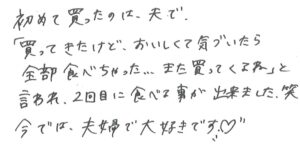 初めて買ったのは、夫で、
「買ってきたけど、おいしくて気づいたら
全部食べちゃった…また買ってくるね」と
言われ、2回目に食べる事が出来ました。笑
今では、夫婦で大好きです♡"